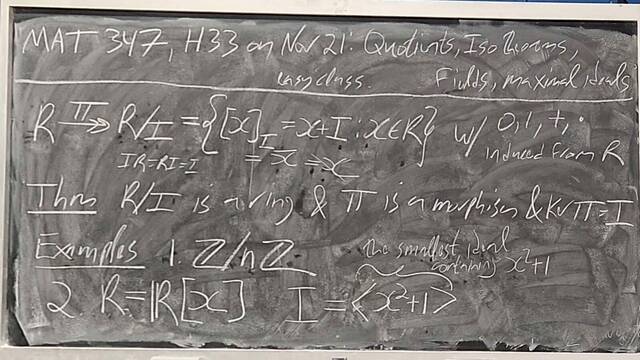 MAT 347, H33 on Nov 21: Quotients, Iso theorems,
easy class. Fields, maximal ideals
R →π→ R/I = {[x]_I = x+I : x∈R} w/ 0, 1, +, ·
IR=RI=I = x̄ = x induced from R
Thm R/I is a ring & π is a morphism & Ker π = I
Examples 1. ℤ/nℤ
the smallest ideal
containing x²+1
2. R=ℝ[x] I=<x²+1>